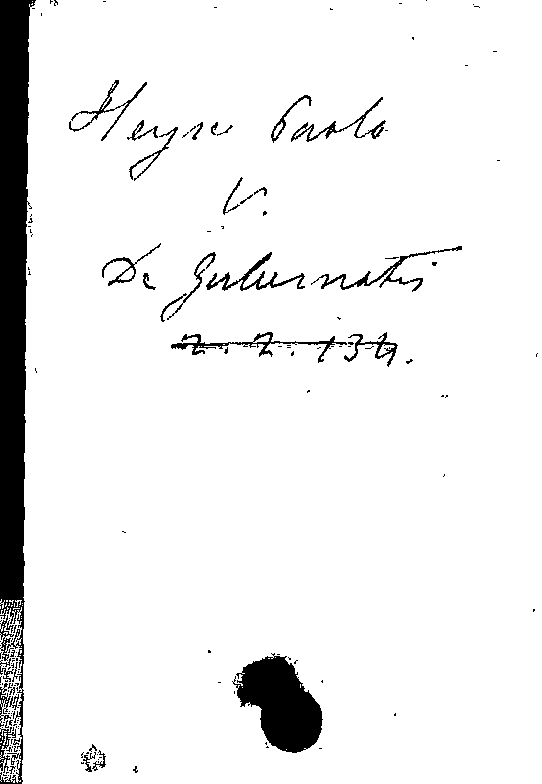 Heyse Paolo
V.
De Gubernatis
2. 2. 134.